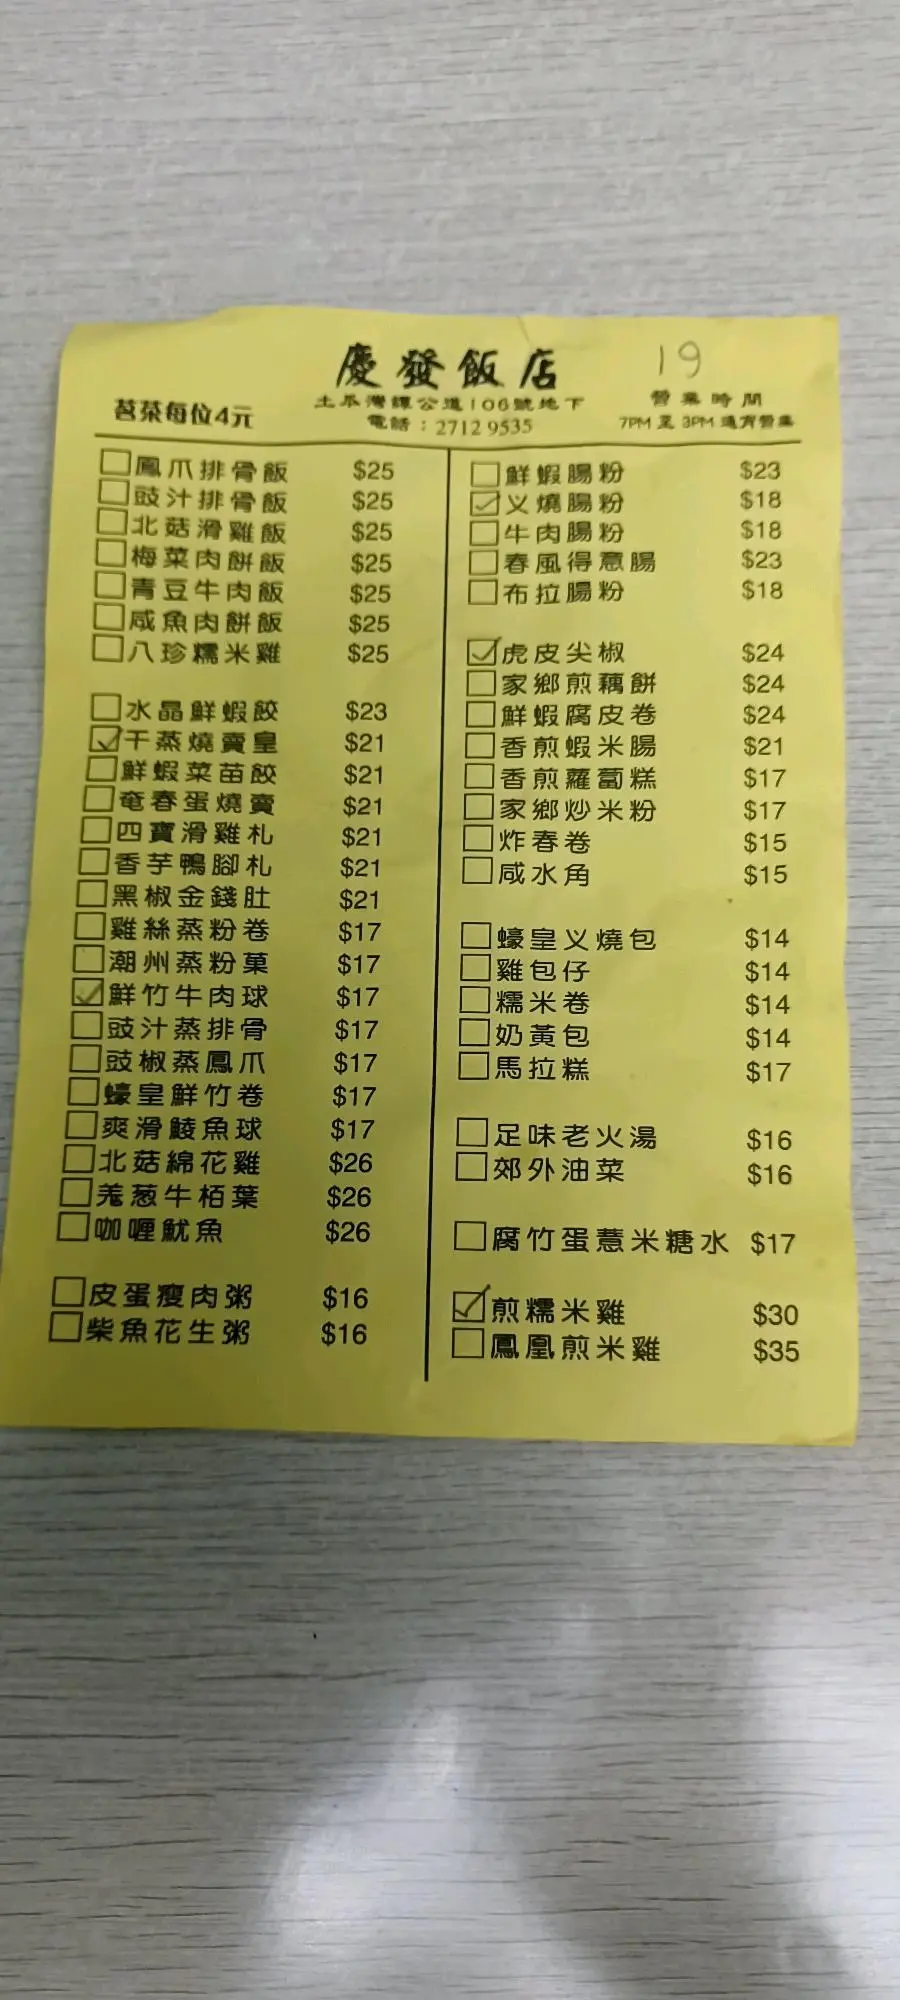 慶發飯店
19
土瓜灣譚公道106號地下
電話：2712 9535
茗茶每位4元
營業時間
7PM 至 3PM 通宵營業
□鳳爪排骨飯 $25
□豉汁排骨飯 $25
□北菇滑雞飯 $25
□梅菜肉餅飯 $25
□青豆牛肉飯 $25
□咸魚肉餅飯 $25
□八珍糯米雞 $25
□水晶鮮蝦餃 $23
☑干蒸燒賣皇 $21
□鮮蝦菜苗餃 $21
□奄春蛋燒賣 $21
□四寶滑雞札 $21
□香芋鴨腳札 $21
□黑椒金錢肚 $21
□雞絲蒸粉卷 $17
□潮州蒸粉菓 $17
☑鮮竹牛肉球 $17
□豉汁蒸排骨 $17
□豉椒蒸鳳爪 $17
□蠔皇鮮竹卷 $17
□爽滑鯪魚球 $17
□北菇綿花雞 $26
□羗葱牛栢葉 $26
□咖喱魷魚 $26
□皮蛋瘦肉粥 $16
□柴魚花生粥 $16
□鮮蝦腸粉 $23
☑义燒腸粉 $18
□牛肉腸粉 $18
□春風得意腸 $23
□布拉腸粉 $18
☑虎皮尖椒 $24
□家鄉煎藕餅 $24
□鮮蝦腐皮卷 $24
□香煎蝦米腸 $21
□香煎蘿蔔糕 $17
□家鄉炒米粉 $17
□炸春卷 $15
□咸水角 $15
□蠔皇义燒包 $14
□雞包仔 $14
□糯米卷 $14
□奶黃包 $14
□馬拉糕 $17
□足味老火湯 $16
□郊外油菜 $16
□腐竹蛋薏米糖水 $17
☑煎糯米雞 $30
□鳳凰煎米雞 $35